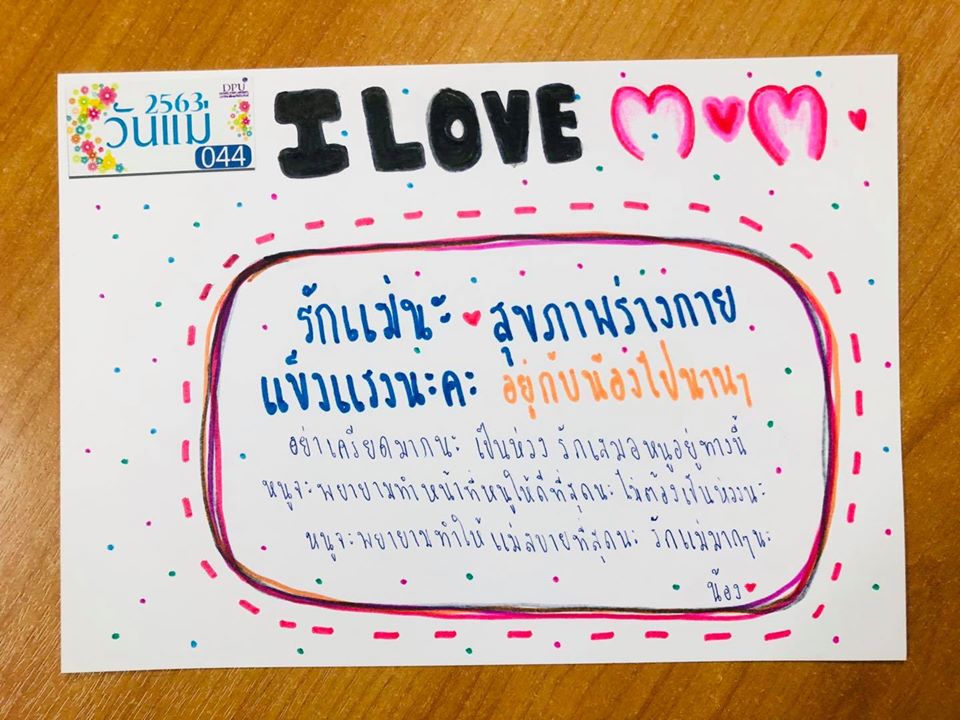 2563
วันแม่
DPU
044
I LOVE MOM
รักแม่นะ สุขภาพร่างกาย
แข็งแรงนะคะ อยู่กับน้องไปนานๆ
อย่าเครียดมากนะ เป็นห่วง รักเสมอหนูอยู่ทางนี้
หนูจะพยายามทำหน้าที่หนูให้ดีที่สุดนะ ไม่ต้องเป็นห่วงนะ
หนูจะพยายามทำให้แม่สบายที่สุดนะ รักแม่มากๆนะ
น้อง